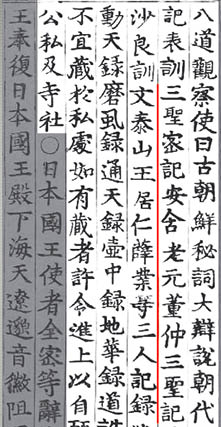 八道觀察使曰古朝鮮秘詞大辯說朝代
記表訓三聖密記安含老元董仲三聖記
沙良訓文泰山王居仁薛業等三人記録
動天録磨虱録通天録壺中録地華録道詵
不宜藏於私處如有藏者許令進上以自願
公私及寺社○日本國王使者全密等辭
王奉復日本國王殿下海天遼邈音徽阻